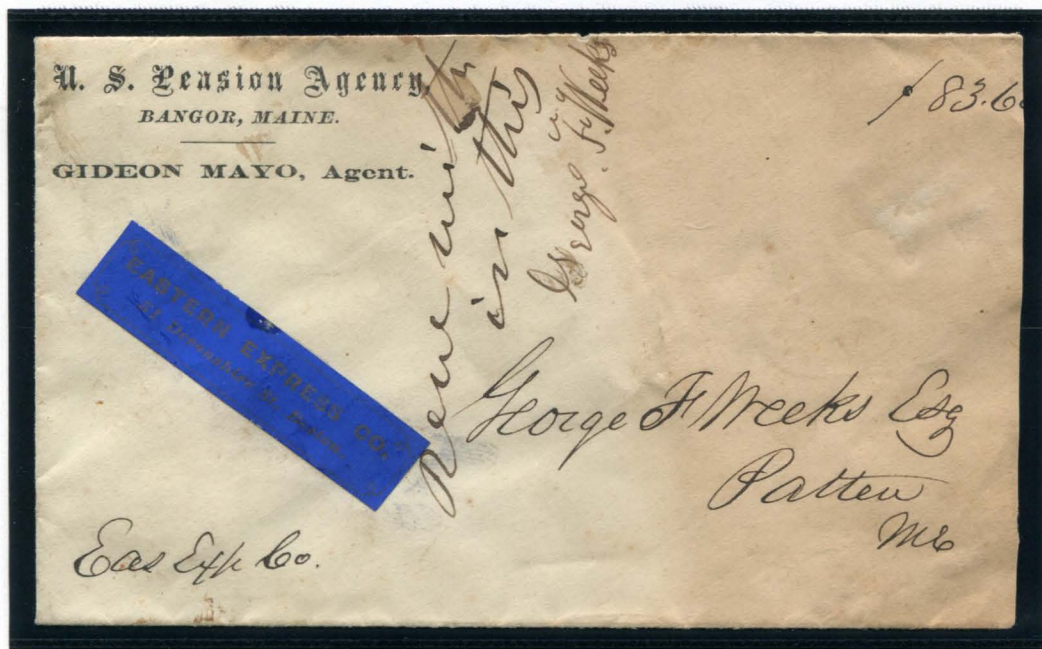 U. S. Pension Agency,
BANGOR, MAINE.
GIDEON MAYO, Agent.
83.6
in this
George F. Weeks
EASTERN EXPRESS CO.
George F Weeks Esq
Patten
Me
Eas Exp Co.